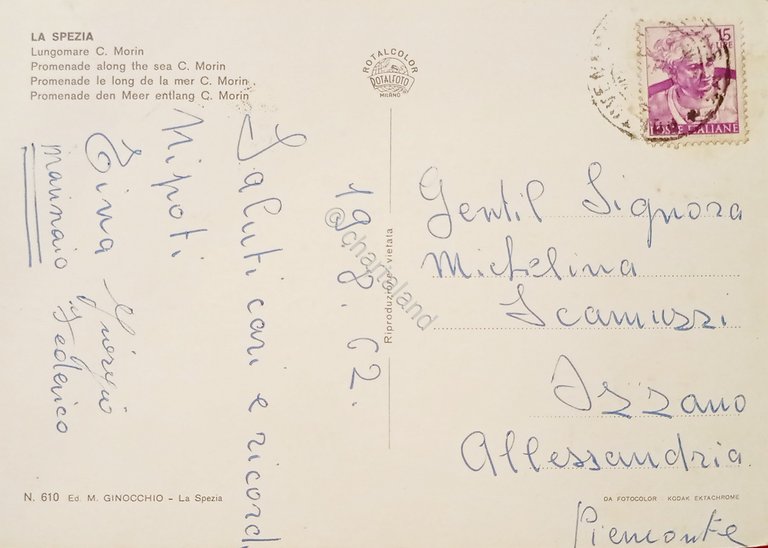 LA SPEZIA
Lungomare C. Morin
Promenade along the sea C. Morin
Promenade le long de la mer C. Morin
Promenade den Meer entlang C. Morin
ROTALCOLOR
ROTALFOTO
MILANO
15
LIRE
POSTE ITALIANE
19.8.62.
Saluti cari e ricord
Nipoti
Zina Giorgio
marinaio Federico
Gentil Signora
Michelina
Scamuzzi
Azzano
Allessandria
Piemonte
Riproduzione vietata
@chartaland
N. 610 Ed. M. GINOCCHIO - La Spezia
DA FOTOCOLOR KODAK EKTACHROME